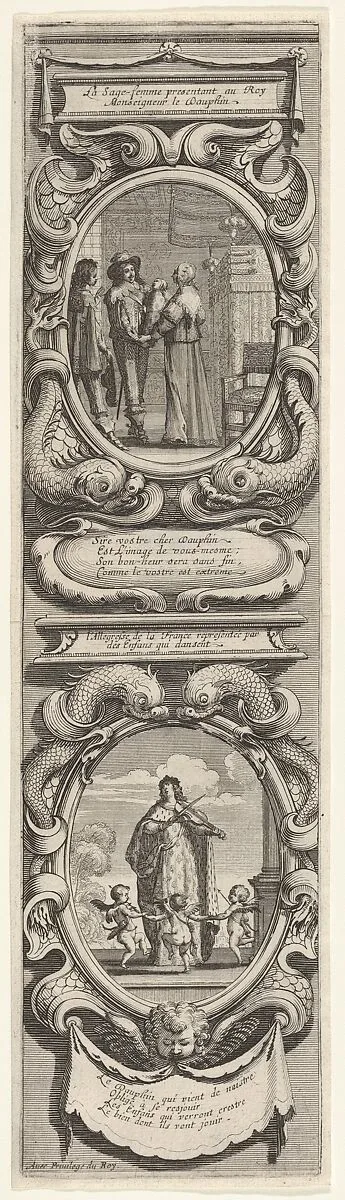 La Sage-femme presentant au Roy
Monseigneur le Dauphin
Sire vostre cher Dauphin
Est L'image de vous-mesme;
Son bon-heur sera sans fin,
Comme le vostre est extreme
l'Allegresse de la France representee par
des Enfans qui dansent
Le Dauphin qui vient de naistre
Oblige à se resjouir
Les Enfans qui verront croistre
Le bien dont ils vont jouir
Avec Privilege du Roy